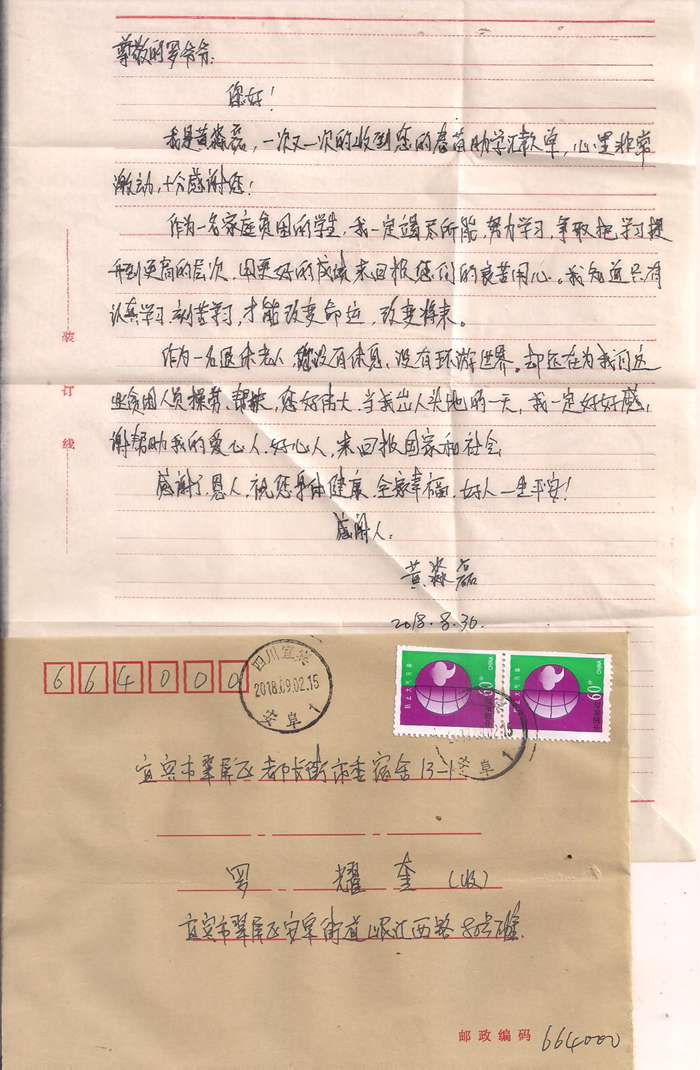 尊敬的罗爷爷:
您好!
我是黄淼磊,一次又一次的收到您的春苗助学汇款单,心里非常
激动,十分感谢您!
作为一名家庭贫困的学生,我一定竭尽所能,努力学习,争取把学习提
升到更高的层次,用更好的成绩来回报您们的良苦用心。我知道只有
认真学习,刻苦学习,才能改变命运,改变将来。
作为一名退休老人,您没有休息,没有环游世界。却还在为我们这
些贫困人员操劳、帮扶,您好伟大,当我出人头地的一天,我一定好好感
谢帮助我的爱心人、好心人,来回报国家和社会
感谢了,恩人,祝您身体健康,全家幸福,好人一生平安!
感谢人:
黄淼磊
2018.8.30.
装订线
664000
四川宜宾
2018.09.02.15
安阜
1
防止大气污染
中国邮政
60分
CHINA
中国邮政
60分
CHINA
15
安阜
1
宜宾市翠屏区老都长街市委宿舍13-1
罗耀奎(收)
宜宾市翠屏区安阜街道岷江西路
邮政编码 664000